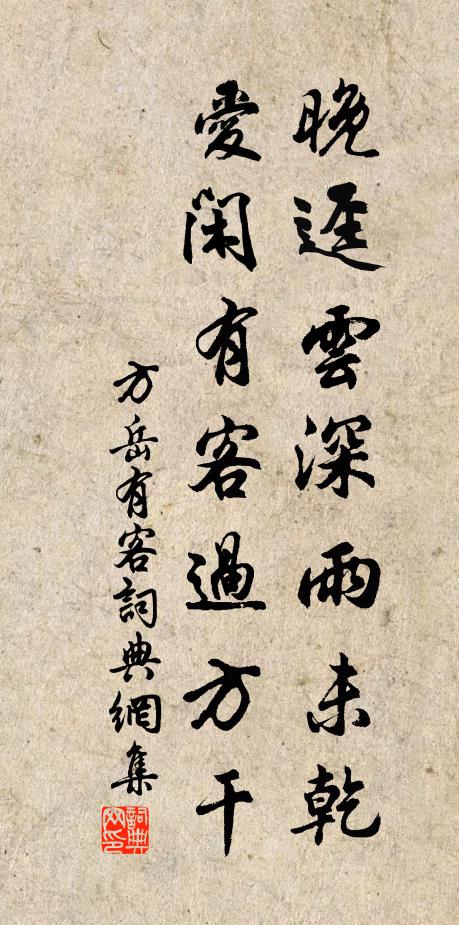 晚逕雲深雨未乾
愛閑有客過方干
方岳有客詞典網集
詞典網印